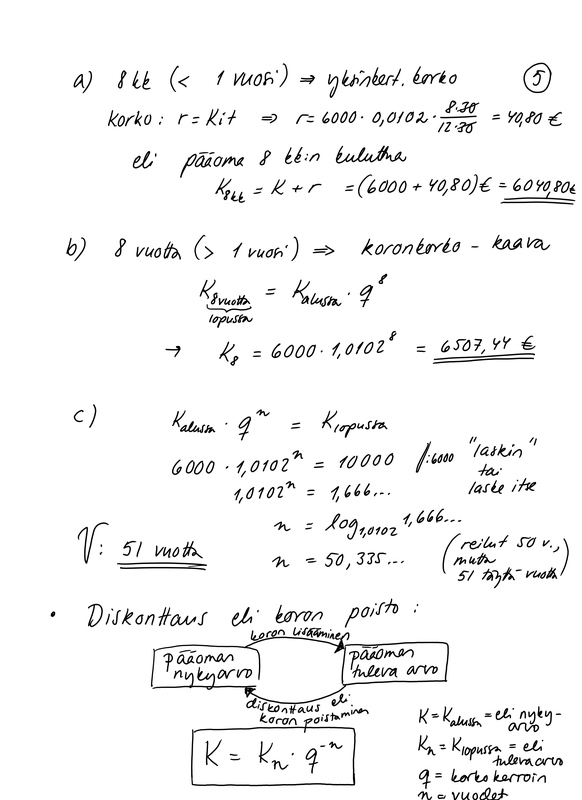 a) 8 kk (< 1 vuosi) ⇒ yksinkert. korko
5
korko : r = Kit ⇒ r = 6000 · 0,0102 · 8·30/12·30 = 40,80 €
eli pääoma 8 kk:n kuluttua
K8kk = K + r = (6000 + 40,80) € = 6040,80€
b) 8 vuotta (> 1 vuosi) ⇒ koronkorko - kaava
K8vuotta = Kalussa · q^8
lopussa
→ K8 = 6000 · 1,0102^8 = 6507,44 €
c) Kalussa · q^n = Klopussa
6000 · 1,0102^n = 10000 /:6000 "laskin"
tai
1,0102^n = 1,666... laske itse
n = log1,0102 1,666...
V: 51 vuotta
n = 50,335... (reilut 50 v.,
mutta
51 täyttä vuotta)
• Diskonttaus eli koron poisto :
koron lisääminen
pääoman
nykyarvo
pääoman
tuleva arvo
diskonttaus eli
koron poistaminen
K = Kn · q^-n
K = Kalussa = eli nyky-
arvo
Kn = Klopussa = eli
tuleva arvo
q = korkokerroin
n = vuodet